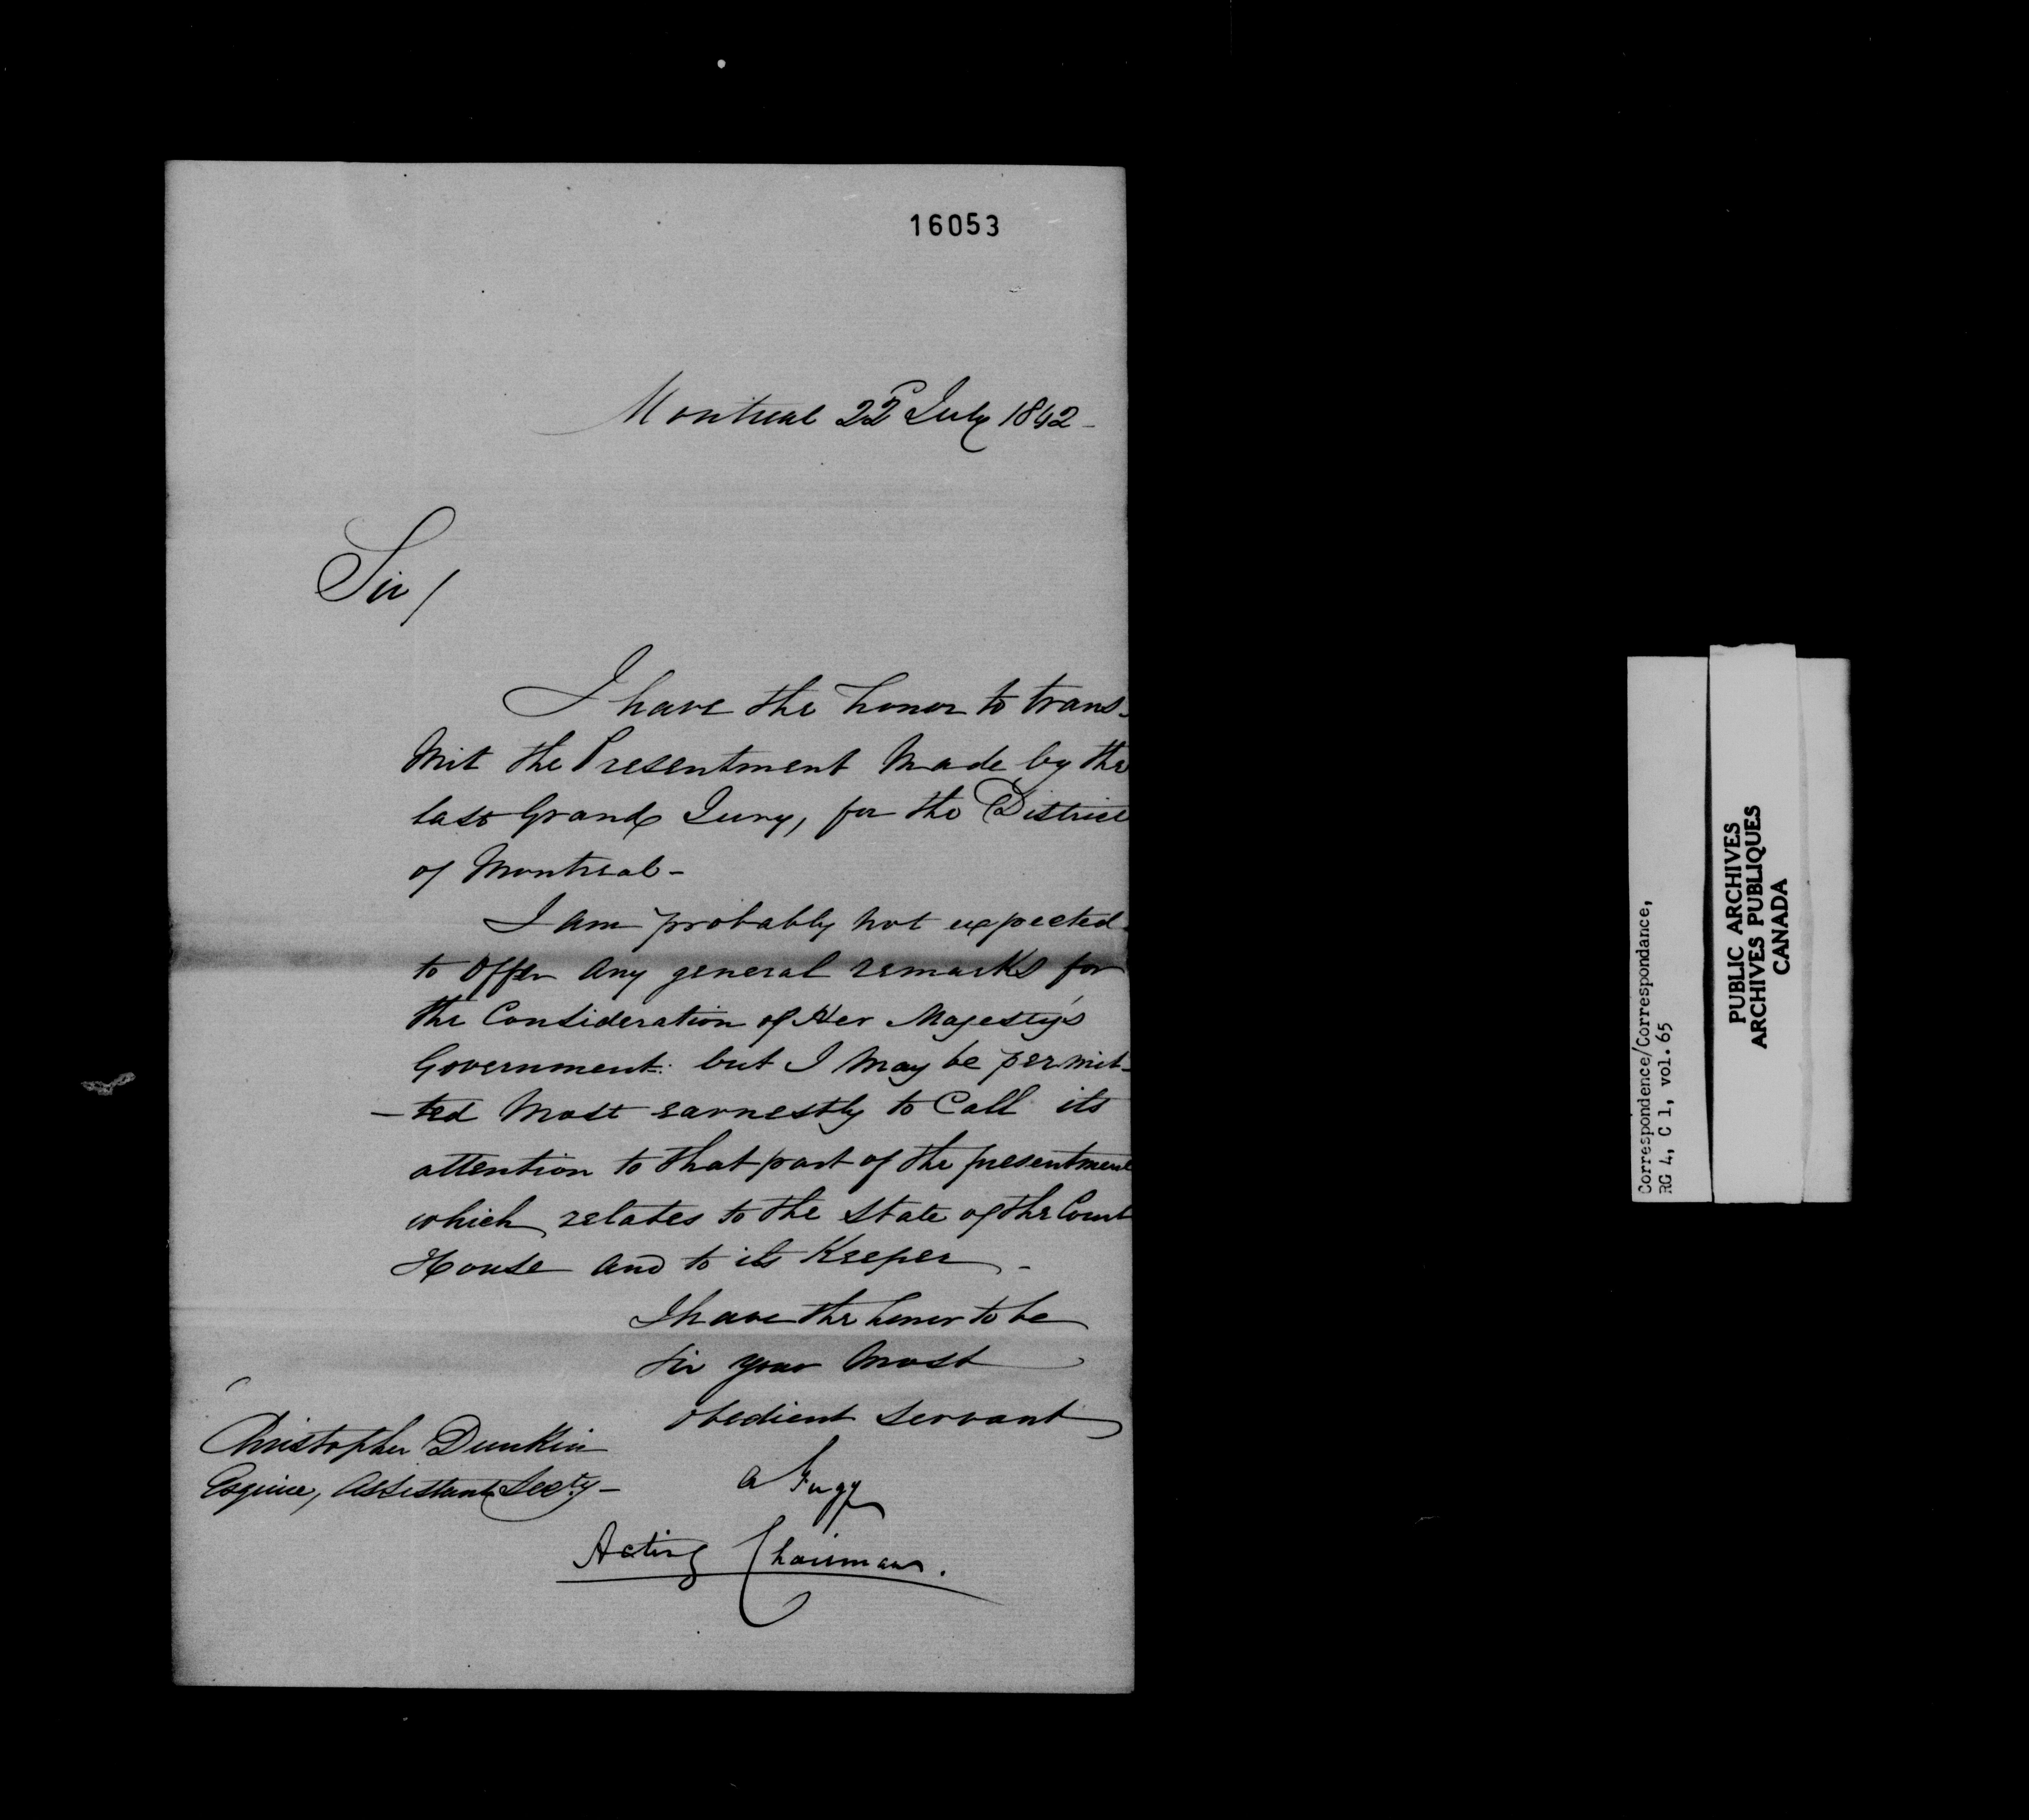 16053
Montreal 22d July 1842 -
Sir /
I have the honor to trans-
mit the Presentment Made by the
last Grand Jury, for the District
of Montreal -
I am probably not expected
to Offer any general remarks for
the Consideration of Her Majesty's
Government: but I may be permit-
-ted Most earnestly to Call its
attention to that part of the presentment
which relates to the State of the Court
House and to its Keeper -
I have the honor to be
Sir your Most
obedient Servant
A Gugy
Acting Chairman.
Christopher Dunkin
Esquire, Assistant Secty -
Correspondence/Correspondance,
RG 4, C 1, vol. 65
PUBLIC ARCHIVES
ARCHIVES PUBLIQUES
CANADA